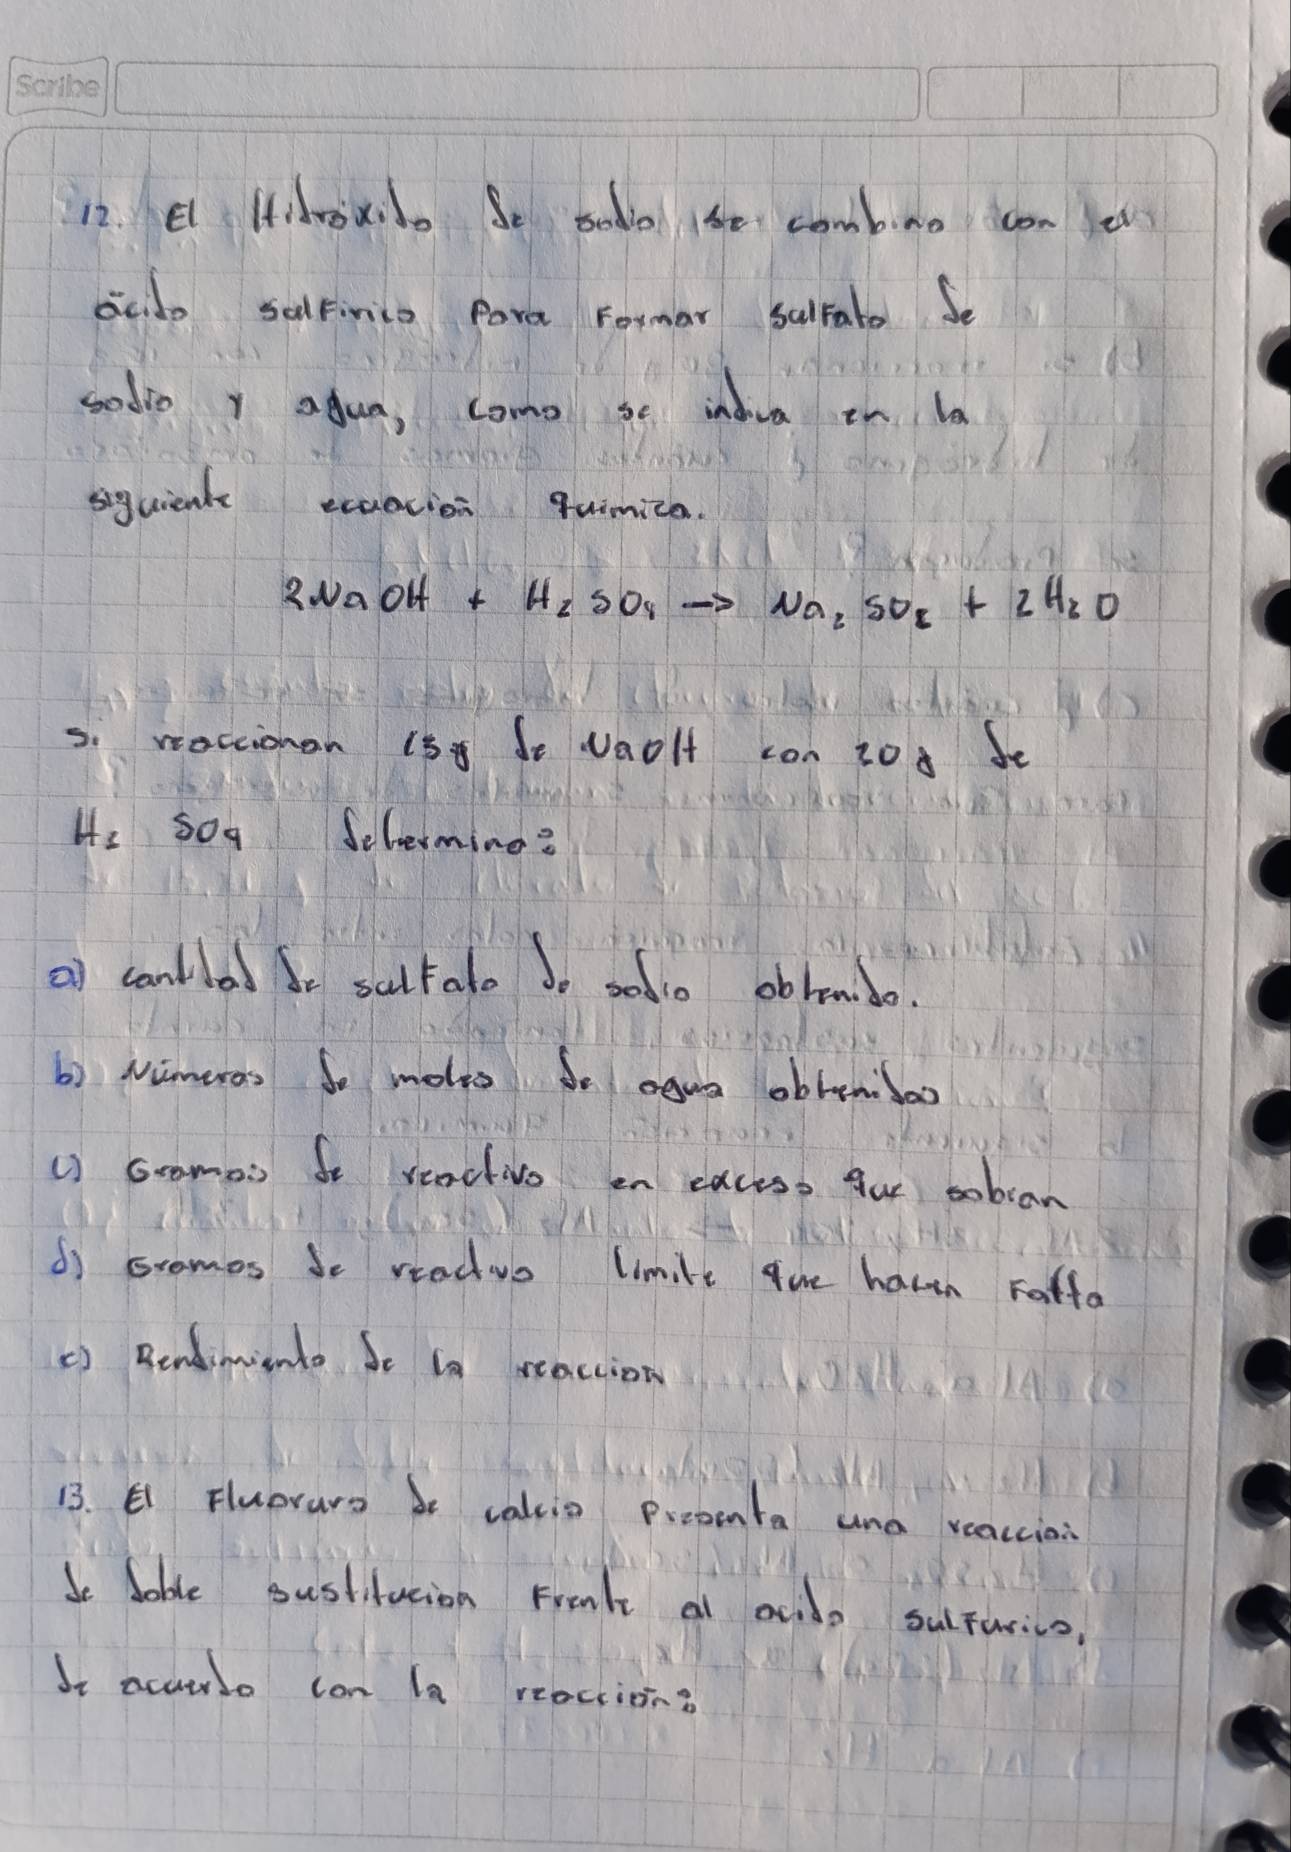 Scribe
12. El Hidróxido de sodio se combino con el
ácido sulfirico Para Formar sulFato de
sodio y agua, como se indica en la
siguiente ecuación quimica.
2NaOH + H₂SO₄ → Na₂SO₄ + 2H₂O
si reaccionan 15g de NaOH con 20g de
H₂ SO₄ determine:
a) cantidad de sulFato de sodio obtenido.
b) Números de moles de agua obtenidas
c) Gramos de reactivo en exceso que sobran
d) Gramos de reactivo limite que hacen Falta
e) Rendimiento de la reacción
13. El Fluoruro de calcio Presenta una reacción
de doble sustitucion Frente al acido sulFurico,
de acuerdo con la reacción: